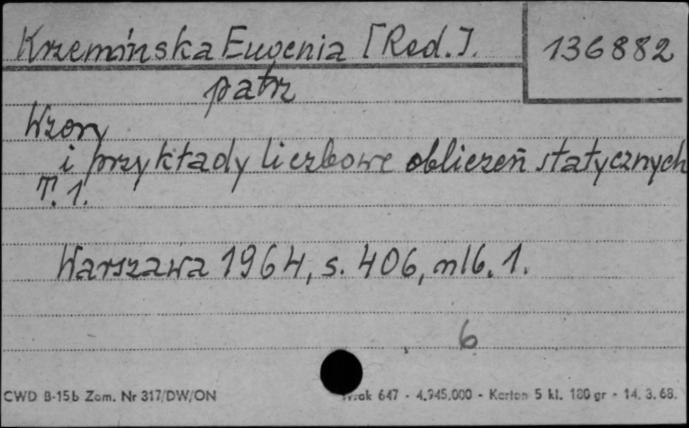 Krzemińska Eugenia [Red.]. 136882
patrz
Wzory
i przykłady liczbowe obliczeń statycznych
T. 1.
Warszawa 1964, s. 406, nlb. 1.
6
CWD B-15b Zam. Nr 317/DW/ON 647 - 4.945.000 - Karton 5 kl. 180 gr - 14. 3. 68.